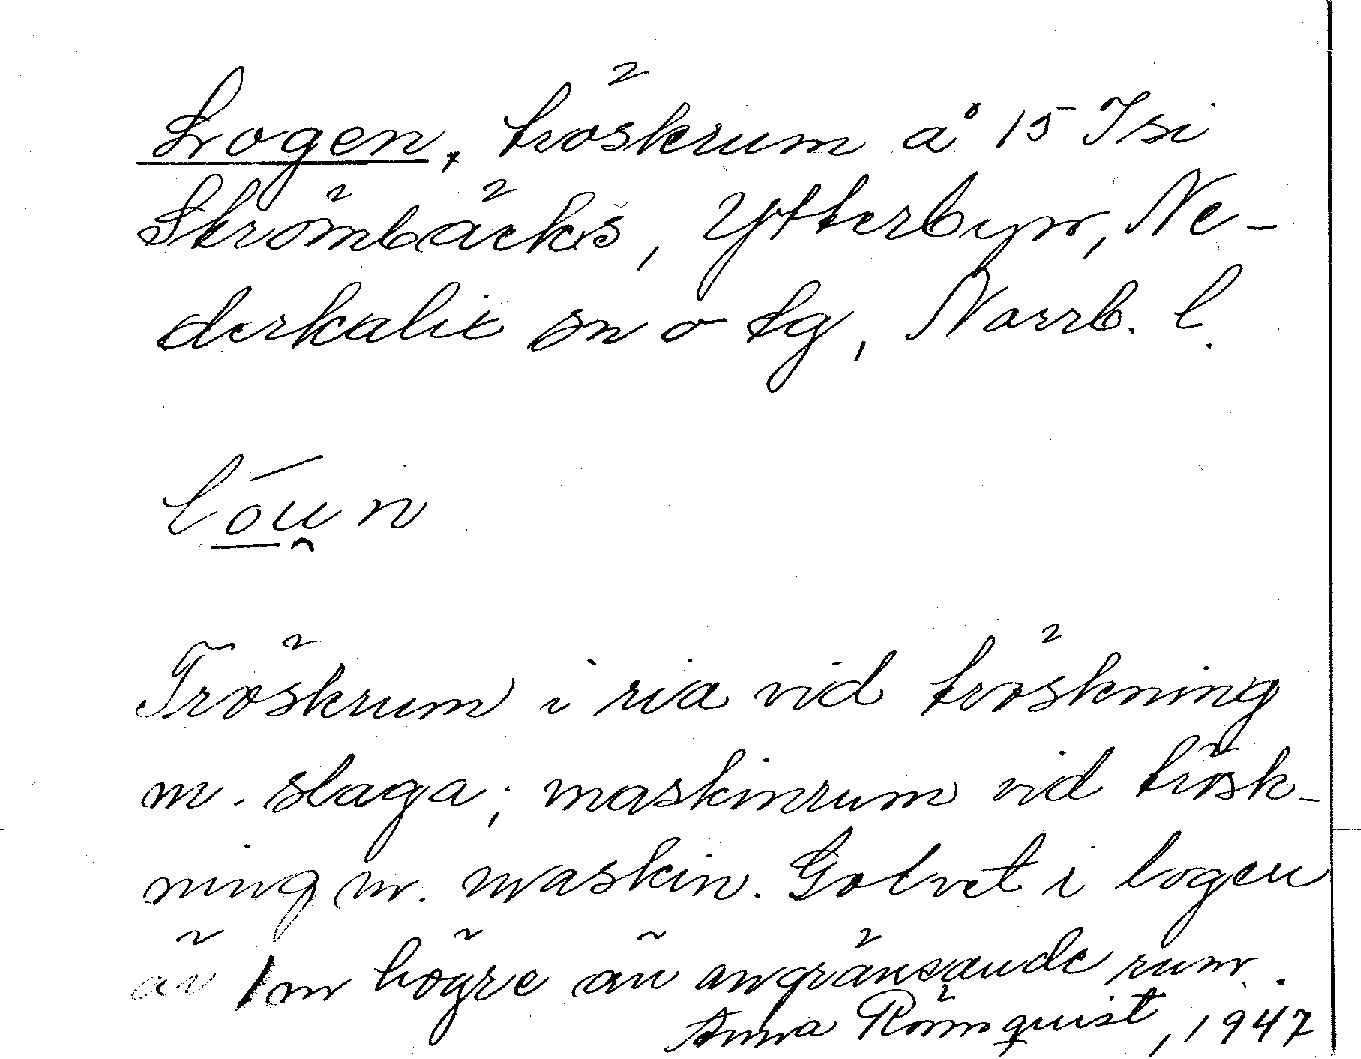 Logen, tröskrum å 15 Isi
Strömbäcks, Ytterbyn, Ne-
derkalix sn o tg, Norrb. l.
lóun
Tröskrum i ria vid tröskning
m. slaga; maskinrum vid trösk-
ning m. maskin. Golvet i logen
är 1 m högre än angränsande rum.
Anna Rönnquist, 1947